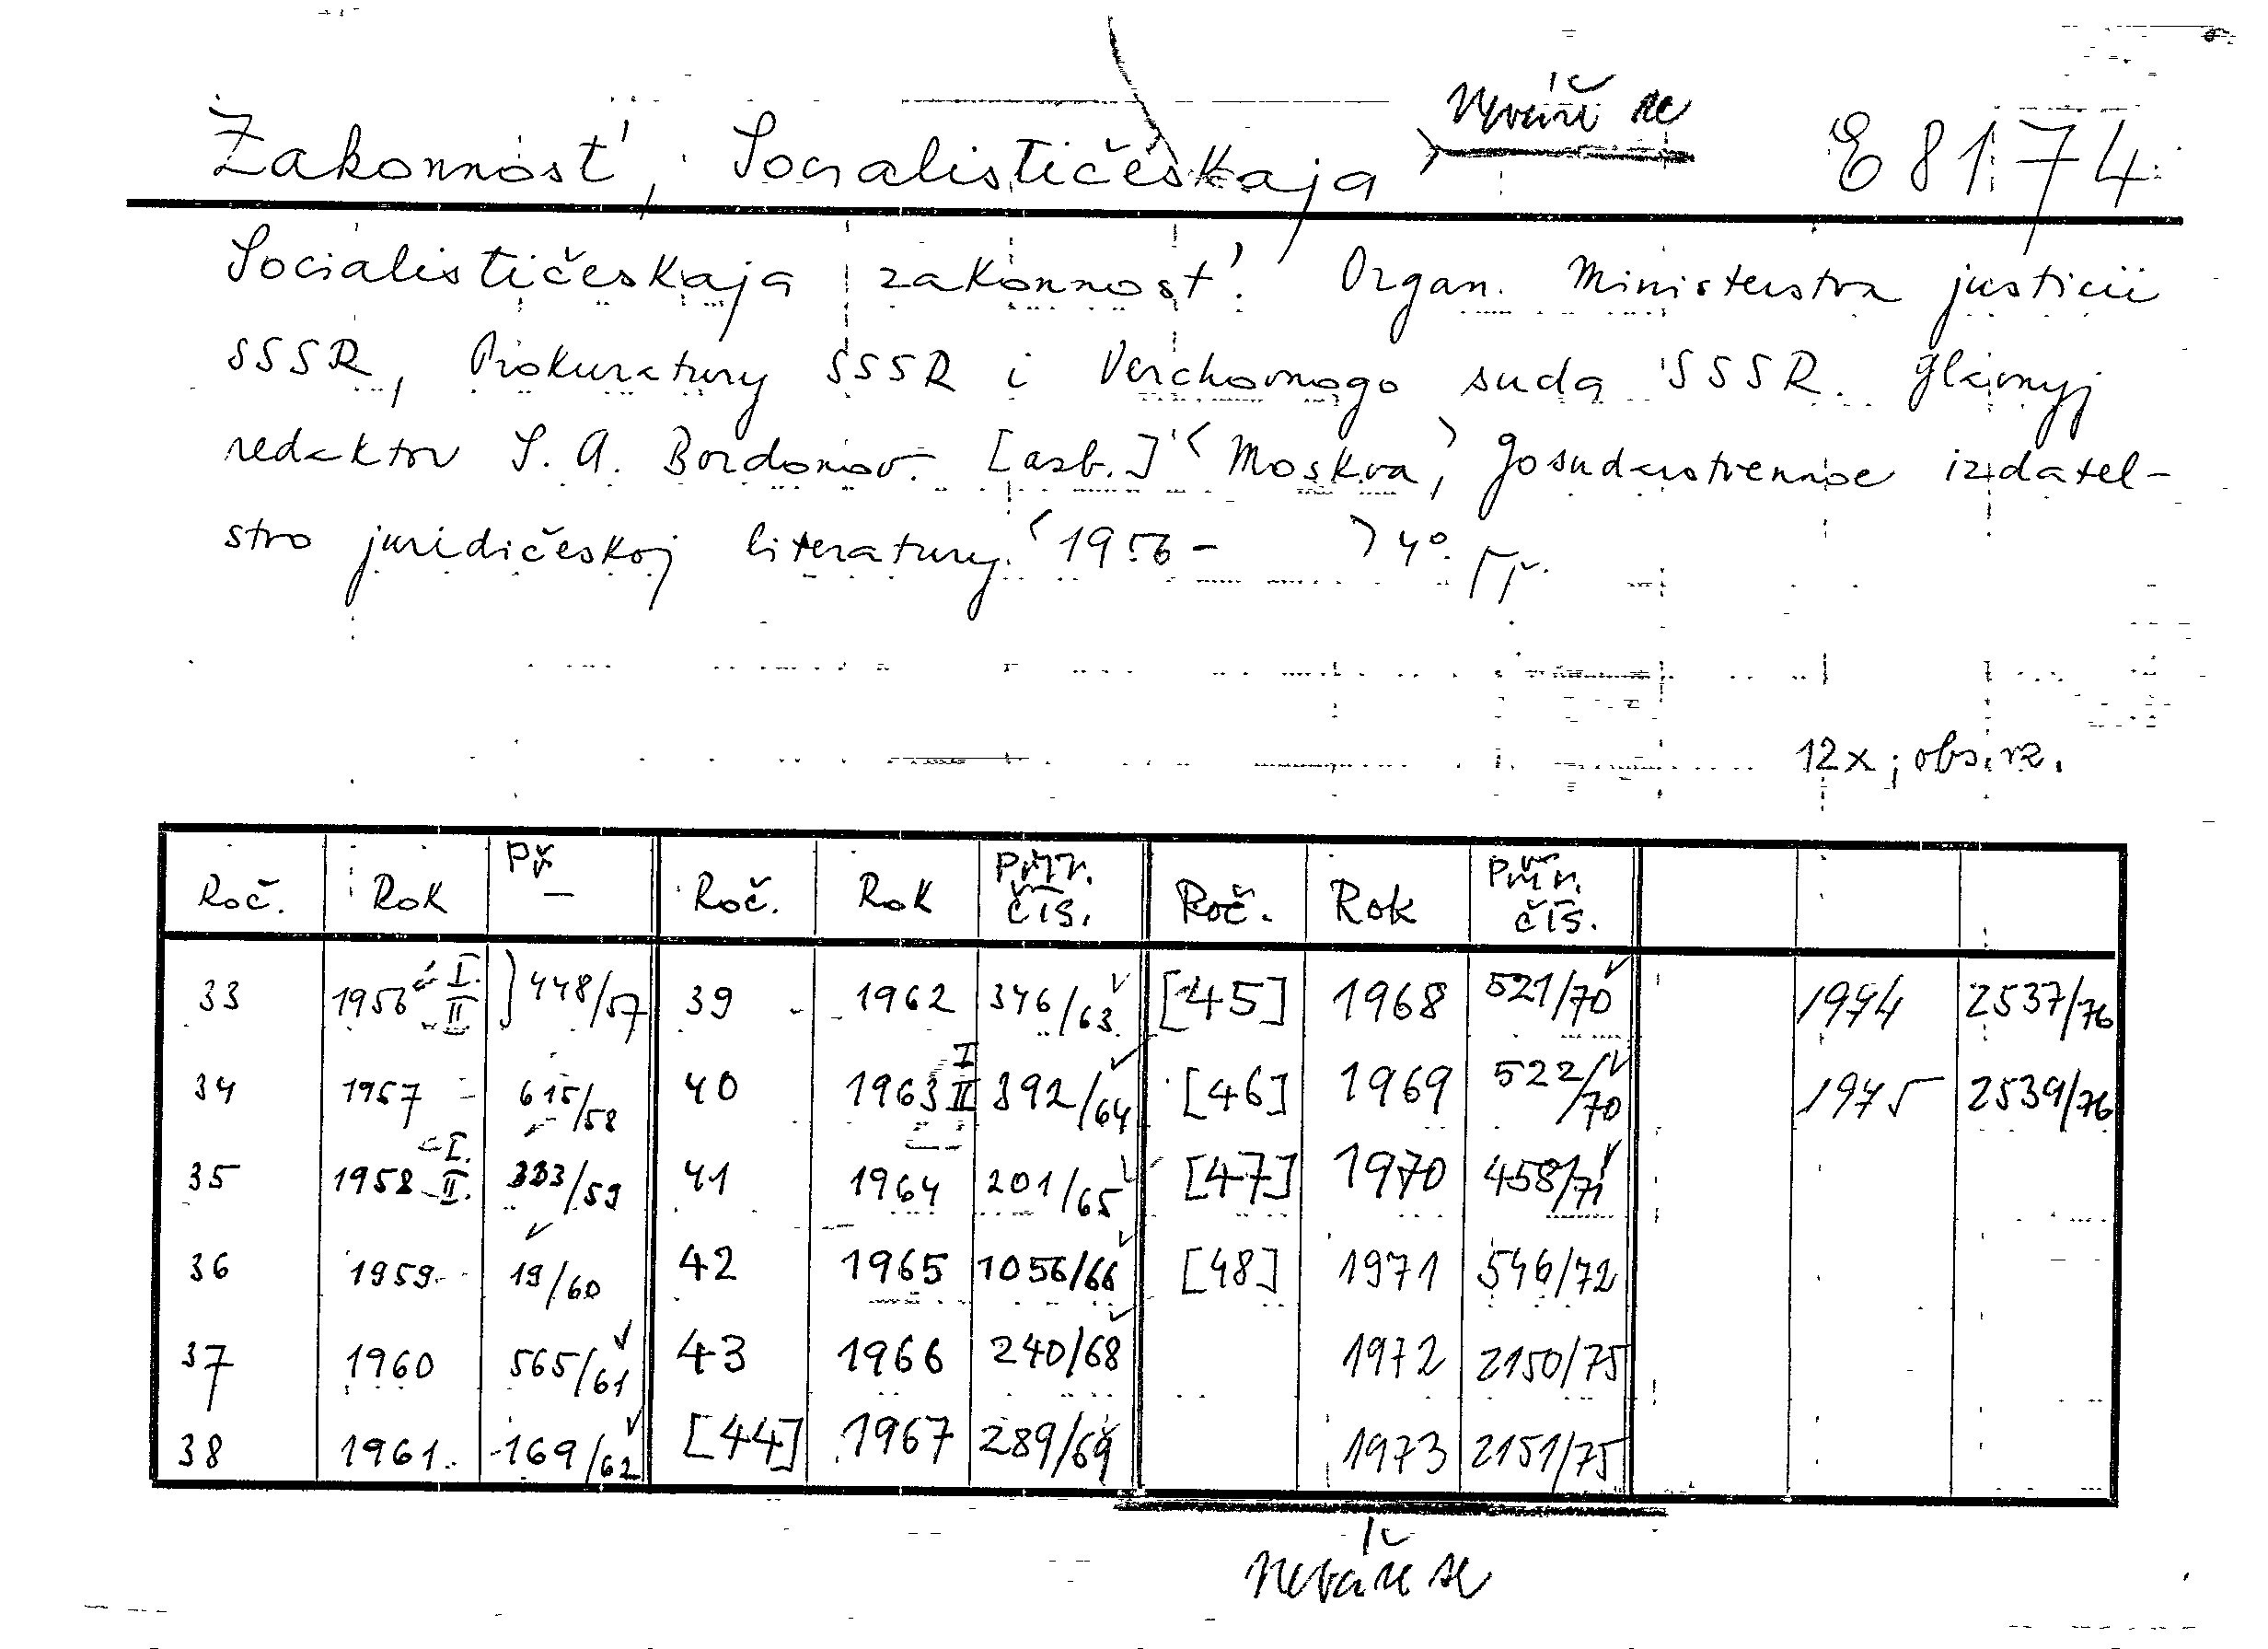 Neváže se
Zakonnost', Socialističeskaja E 8174
Socialističeskaja zakonnost'. Organ. Ministerstva justicii
SSSR, Prokuratury SSSR i Verchovnogo suda SSSR. Glavnyj
redaktor S. A. Bordonov. [azb.] <Moskva,> Gosudarstvennoe izdatel-
stvo juridičeskoj literatury. <1956 - > 4°.
12x; obs. rz.
Roč. Rok Př Roč. Rok Přír. čís. Roč. Rok Přír. čís.
33 1956 I. II } 448/57 39 1962 346/63 [45] 1968 521/70 1974 2537/76
34 1957 615/58 40 1963 I II 392/64 [46] 1969 522/70 1975 2539/76
35 1958 I. II. 333/59 41 1964 201/65 [47] 1970 458/71
36 1959 19/60 42 1965 1056/66 [48] 1971 546/72
37 1960 565/61 43 1966 240/68 1972 2150/75
38 1961 169/62 [44] 1967 289/69 1973 2151/75
Neváže se